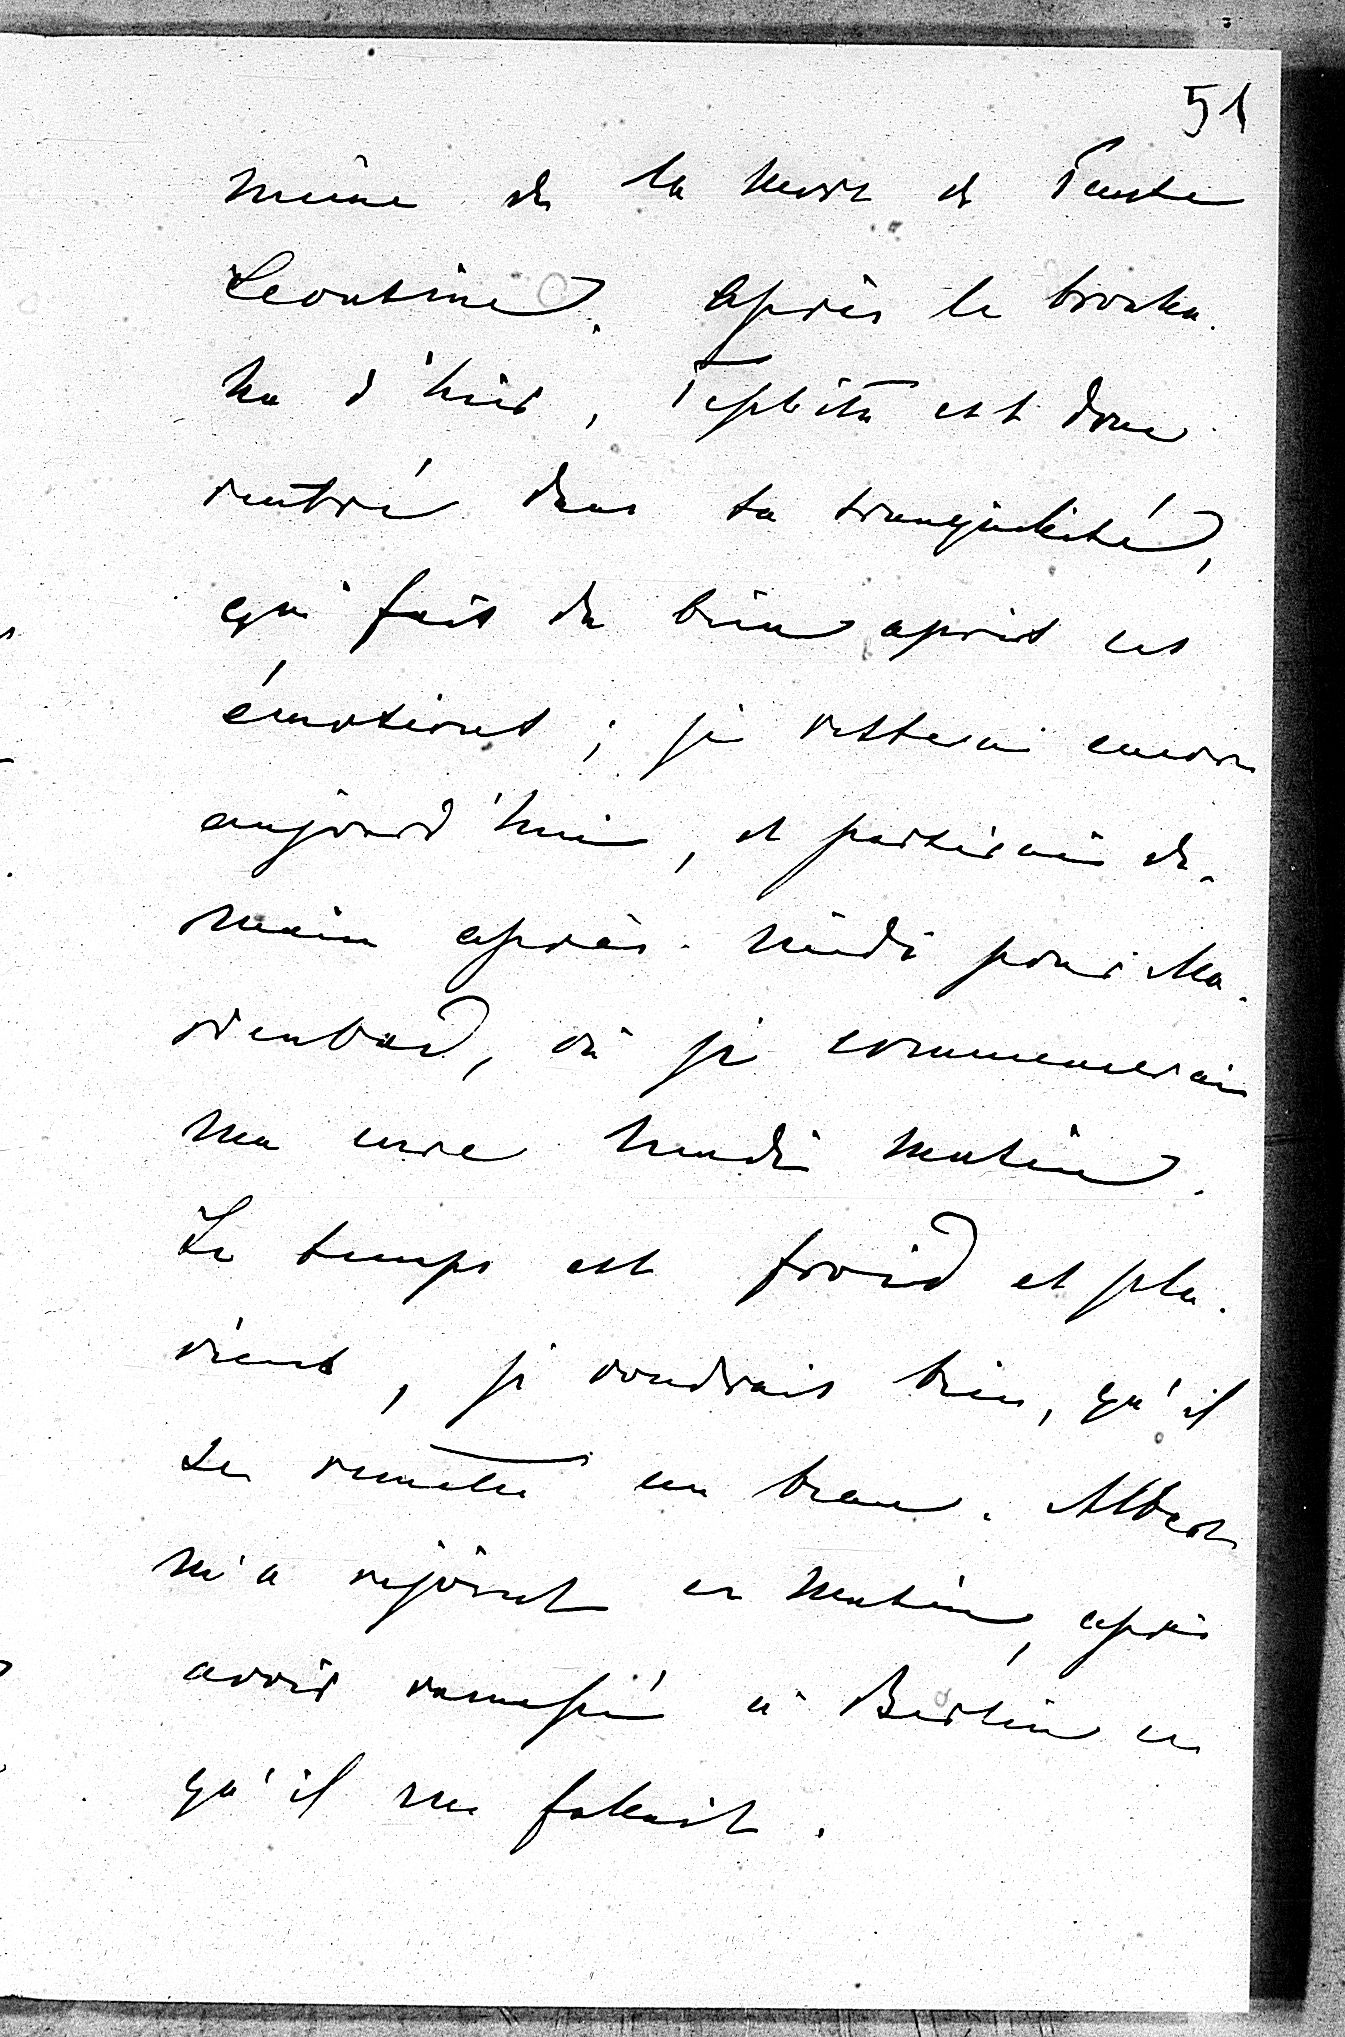 51
même de la mort de Tante
Leontine. Après le brouha-
ha d'hier, Teplitz est donc
rentré dans sa tranquilité,
qui fait du bien après ces
émotions ; je resterai encore
aujourd'hui, et partirai de-
main après-midi pour Ma-
rienbad, où je commencerai
ma cure lundi matin.
Le temps est froid et plu-
vieux, je voudrais bien, qu'il
se remette au beau. Albert
m'a rejoint ce matin, après
avoir ramassé à Berlin ce
qu'il me fallait.